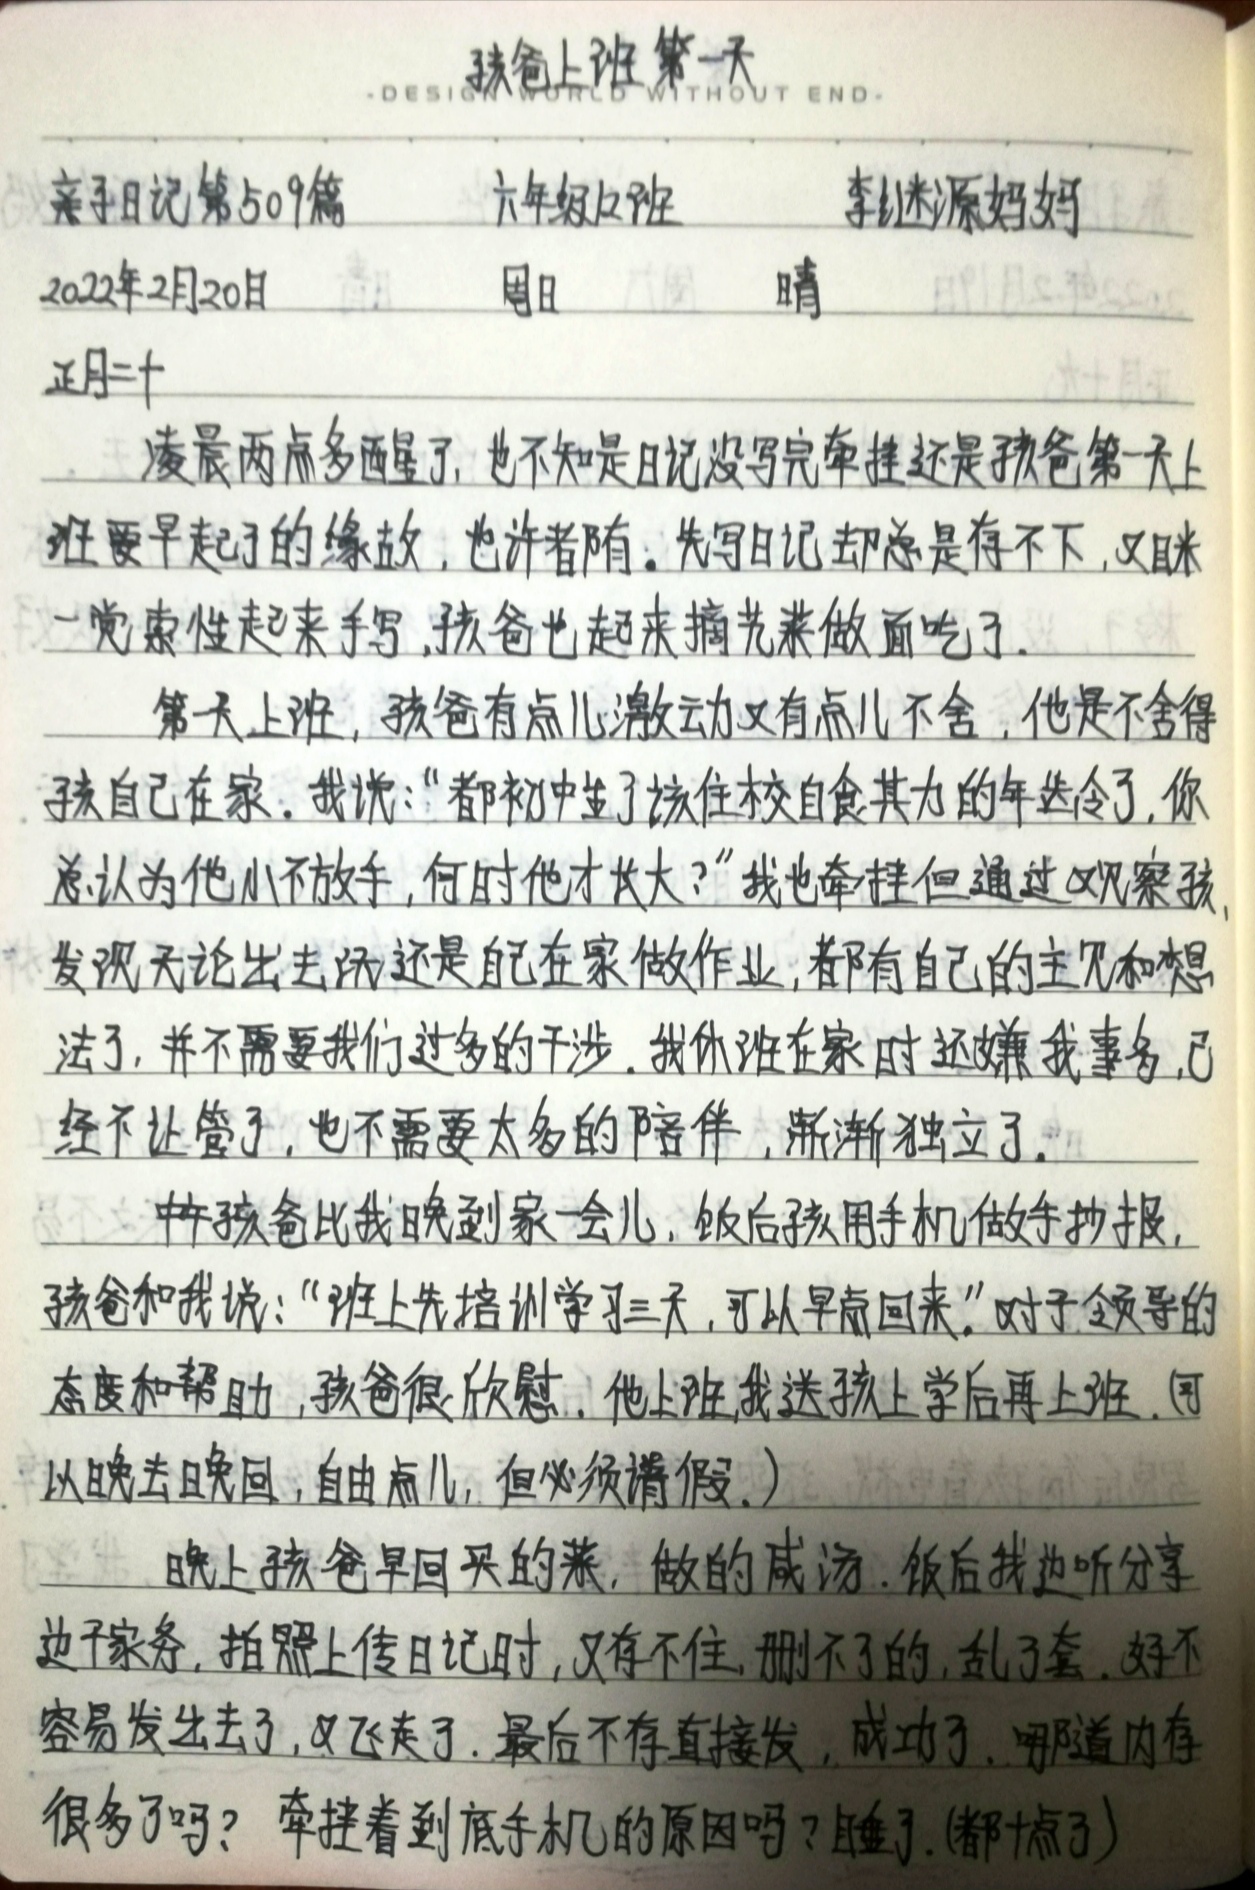 孩爸上班第一天
·DESIGN WORLD WITHOUT END·
亲子日记第509篇 六年级12班 李继源妈妈
2022年2月20日 周日 晴
正月二十
凌晨两点多醒了,也不知是日记没写完牵挂还是孩爸第一天上
班要早起了的缘故,也许者陏有。先写日记却总是存不下,又眯
一觉索性起来手写,孩爸也起来摘芫荽做面吃了.
第一天上班,孩爸有点儿激动又有点儿不舍,他是不舍得
孩自己在家.我说:“都初中生了该住校自食其力的年龄了,你
总认为他小不放手,何时他才长大?”我也牵挂但通过观察孩,
发现无论出去玩还是自己在家做作业,都有自己的主见和想
法了,并不需要我们过多的干涉.我休班在家时还嫌我事多,已
经不让管了,也不需要太多的陪伴,渐渐独立了.
中午孩爸比我晚到家一会儿,饭后孩用手机做手抄报,
孩爸和我说:“班上先培训学习三天,可以早点回来.”对于领导的
态度和帮助,孩爸很欣慰.他上班,我送孩上学后再上班.(可
以晚去晚回,自由点儿,但必须请假.)
晚上孩爸早回买的菜,做的咸汤.饭后我边听分享
边干家务,拍照上传日记时,又存不住,删不了的,乱了套.好不
容易发出去了,又飞走了.最后不存直接发,成功了.哪道内存
很多了吗?牵挂着到底手机的原因吗?睡了.(都十点了)